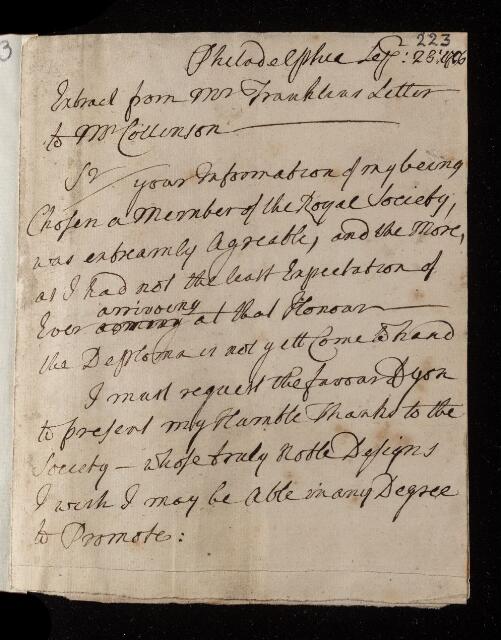 3
223
Philadelphia Sepr: 23: 1756
Extract from Mr Franklins Letter
to Mr Collinson
Sr your Information of my being
Chosen a Member of the Royal Society,
was extreamly Agreable, and the More,
as I had not the least Expectation of
arriveing
Ever at that Honour
the Deploma is not yett Come to hand
I must request the favour Dyon
to present my Humble Thanks to the
Society – whose truly Noble Designs
I wish I may be Able in any Degree
to Promote: